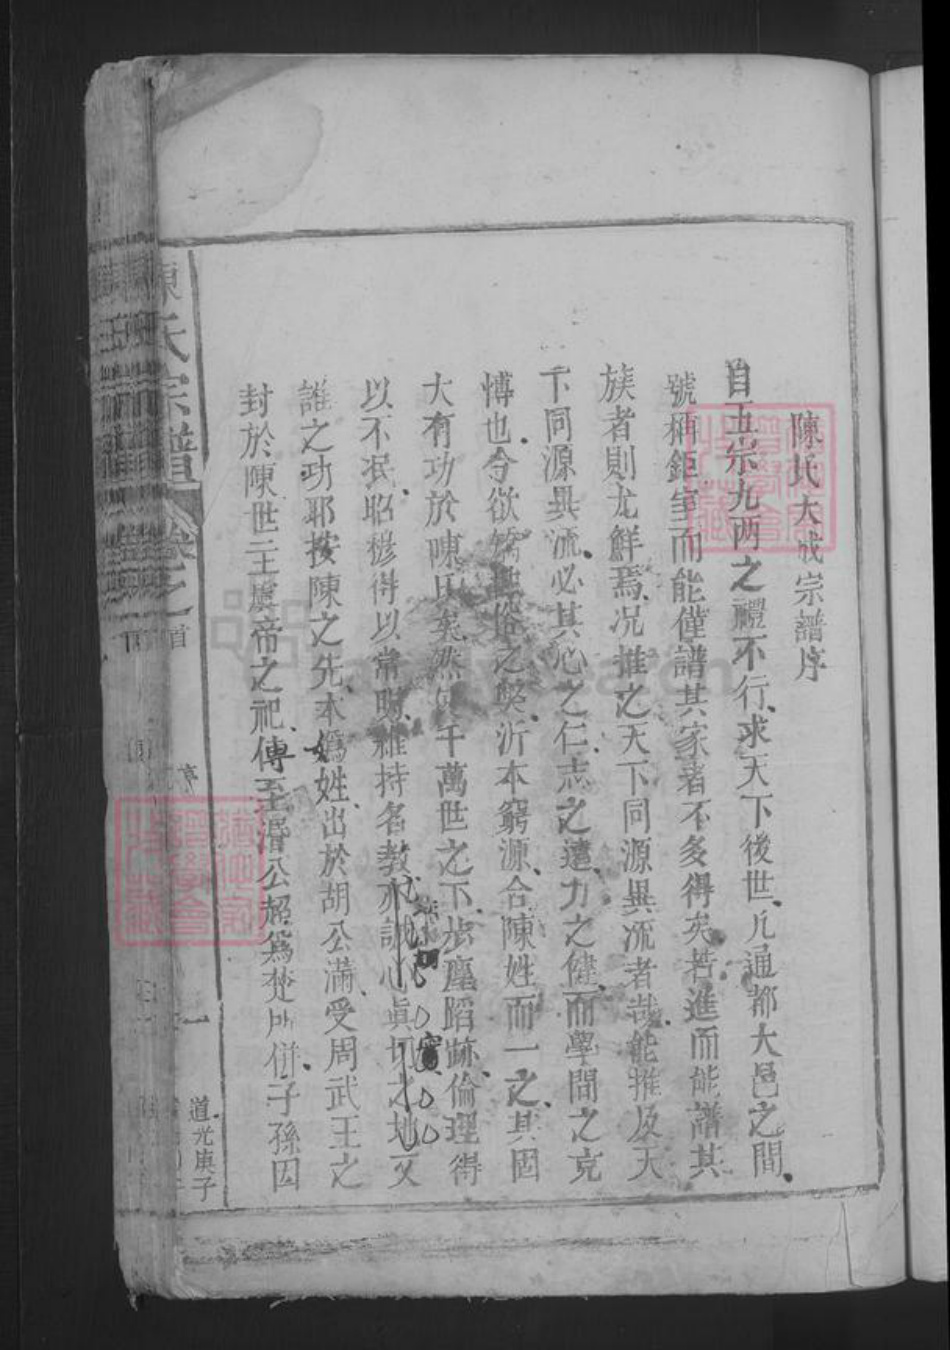 陳氏大成宗譜序
自五宗九两之禮不行求天下後世凡通都大邑之間
號稱鉅室而能僅譜其家者不多得矣若進而能譜其
族者則尤鮮焉况推之天下同源異流者哉能推及天
下同源異流必其心之仁志之遠力之健而學問之克
愽也今欲俗之契沂本窮源合陳姓而一之其固
大有功於陳氏矣然使千萬世之下步塵蹈跡倫理得
以不泯昭穆得以常明維持名教亦誠心眞切之地又
誰之功耶按陳之先本嬀姓出於胡公滿受周武王之
封於陳世三王虞帝之祀傳至湣公超爲楚所併子孫囚
陳氏宗譜
卷之首
序
一
道光庚子